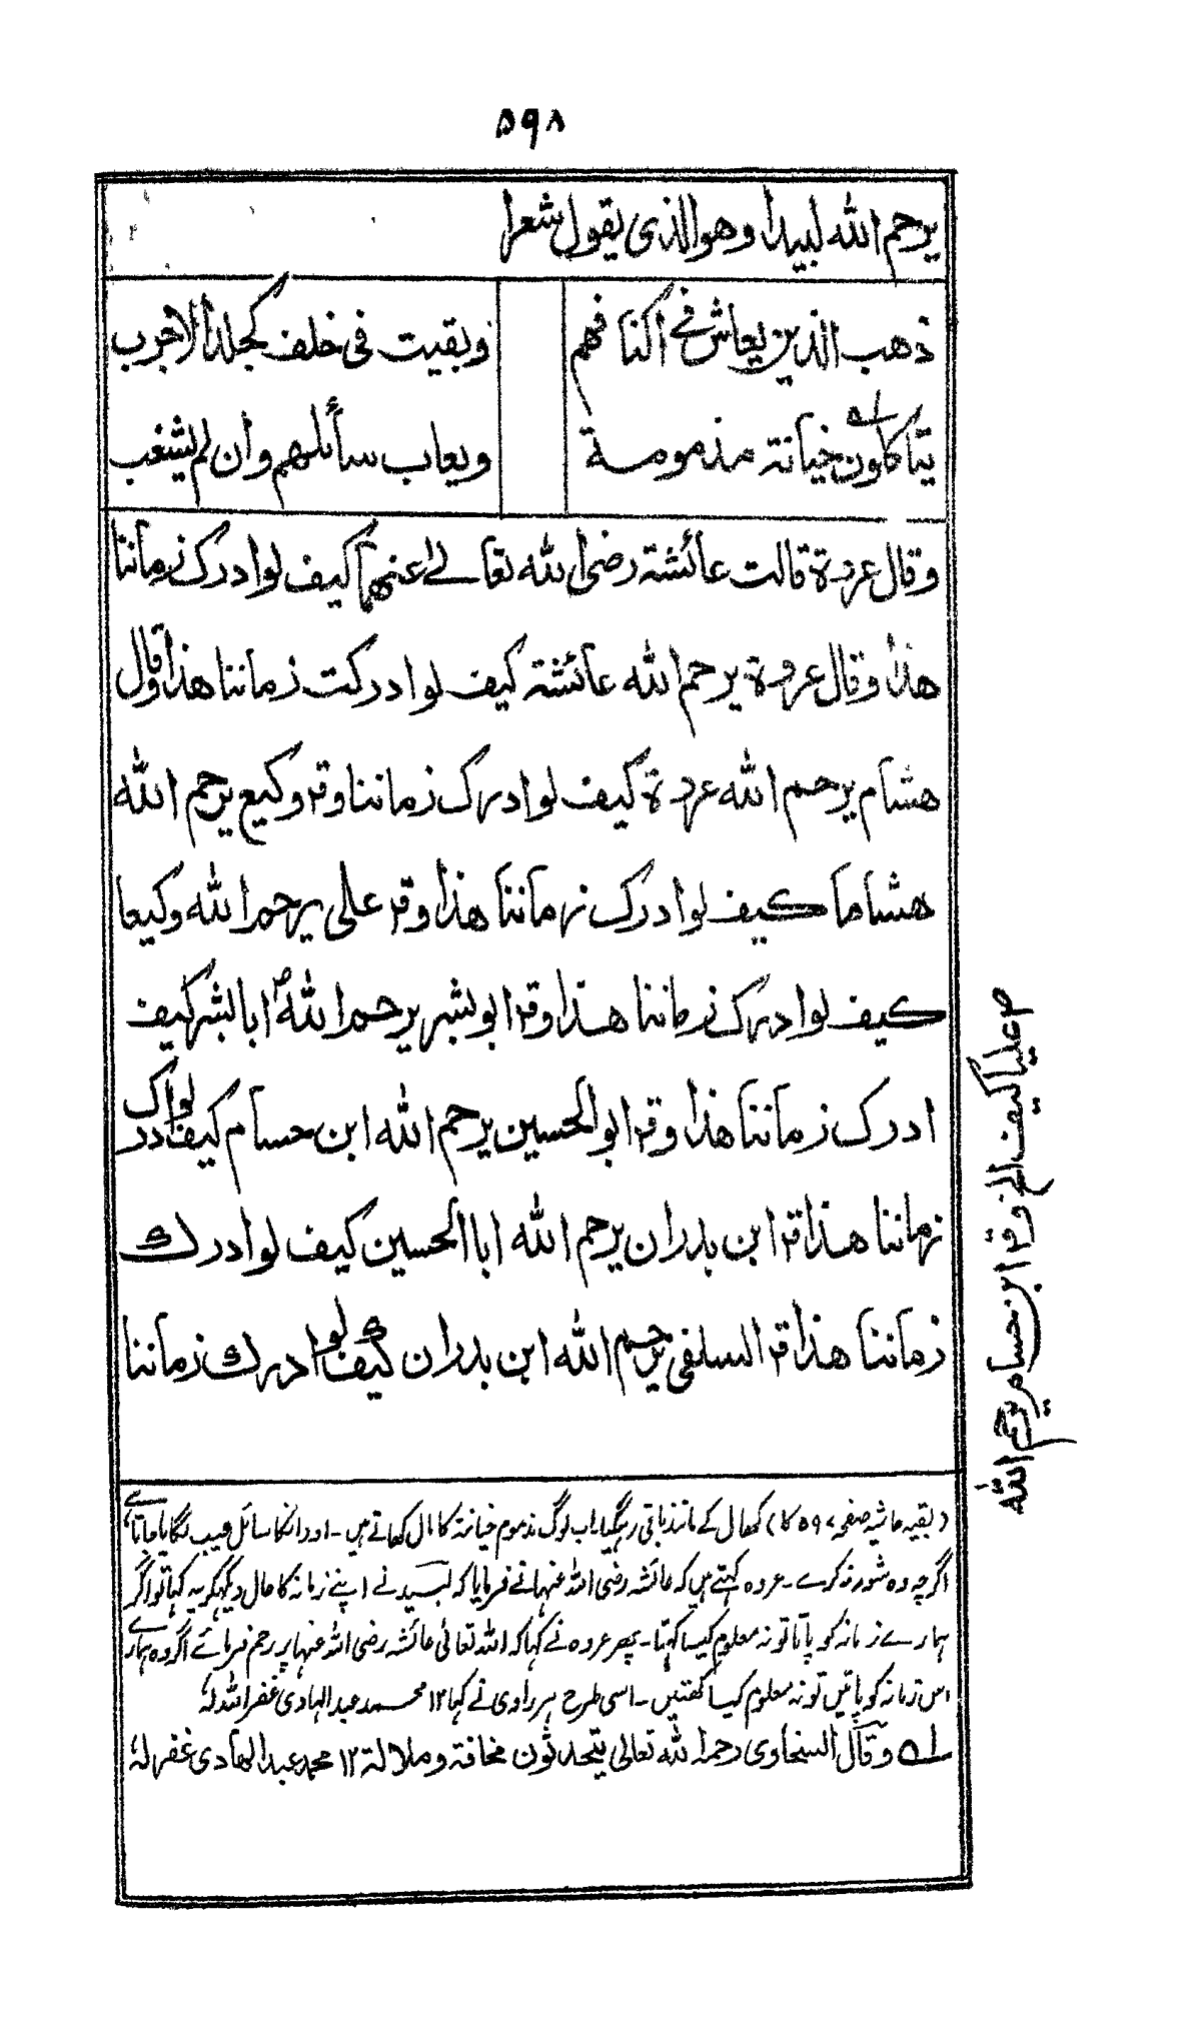 ۵۹۸
يرحم الله لبيدا وهوالذی يقول شعرا
ذهب الذين يعاش فے اكنافهم
وبقيت فی خلف كجلدالاجرب
يتأكلون خيانة مذمومة
ويعاب سائلهم وان لم يشغب
وقال عروة قالت عائشة رضی الله تعالے عنها كيف لوادرك زماننا
هذا وقال عروة يرحم الله عائشة كيف لوادركت زماننا هذا وقال
هشام يرحم الله عروة كيف لوادرك زماننا وقر وكيع يرحم الله
هشاما كيف لوادرك زماننا هذا وقر علی يرحم الله وكيعا
كيف لوادرك زماننا هذا وقر ابو بشر يرحم الله ص ابا بشر كيف
ادرك زماننا هذا وقر ابو الحسين يرحم الله ابن حسام كيف لوادرك
زماننا هذا قر ابن بدران يرحم الله ابا الحسين كيف لوادرك
زماننا هذا قر السلفی يرحم الله ابن بدران كيف لوادرك زماننا
ص عليا كيف الخ وقر ابن حسام يرحم الله
(بقیہ حاشیہ صفحہ ۵۹۷ کا) کھال کے مانند باقی رہگیا۔ اب لوگ مذموم خیانۃ کا مال کھاتے ہیں۔ اور انکا سائل عیب لگایا جاتا ہے
اگرچہ وہ شور نہ کرے۔ عروہ کہتے ہیں کہ عائشہ رضی اللہ عنہا نے فرمایا کہ لبید نے اپنے زمانہ کا حال دیکہکر یہ کہا تو اگر
ہمارے زمانہ کو پاتا تو نہ معلوم کیسا کہتا۔ پھر عروہ نے کہا کہ اللہ تعالیٰ عائشہ رضی اللہ عنہا پر رحم فرمائے اگر وہ ہمارے
اس زمانہ کو پاتیں تو نہ معلوم کیسا کہتیں۔ اسی طرح ہر راوی نے کہا ۱۲ محمد عبد الہادی غفر اللہ لہٗ
لـه وقال السخاوی رحمه الله تعالی يتحدثون مخافة وملالة ۱۲ محمد عبد الهادی غفر له